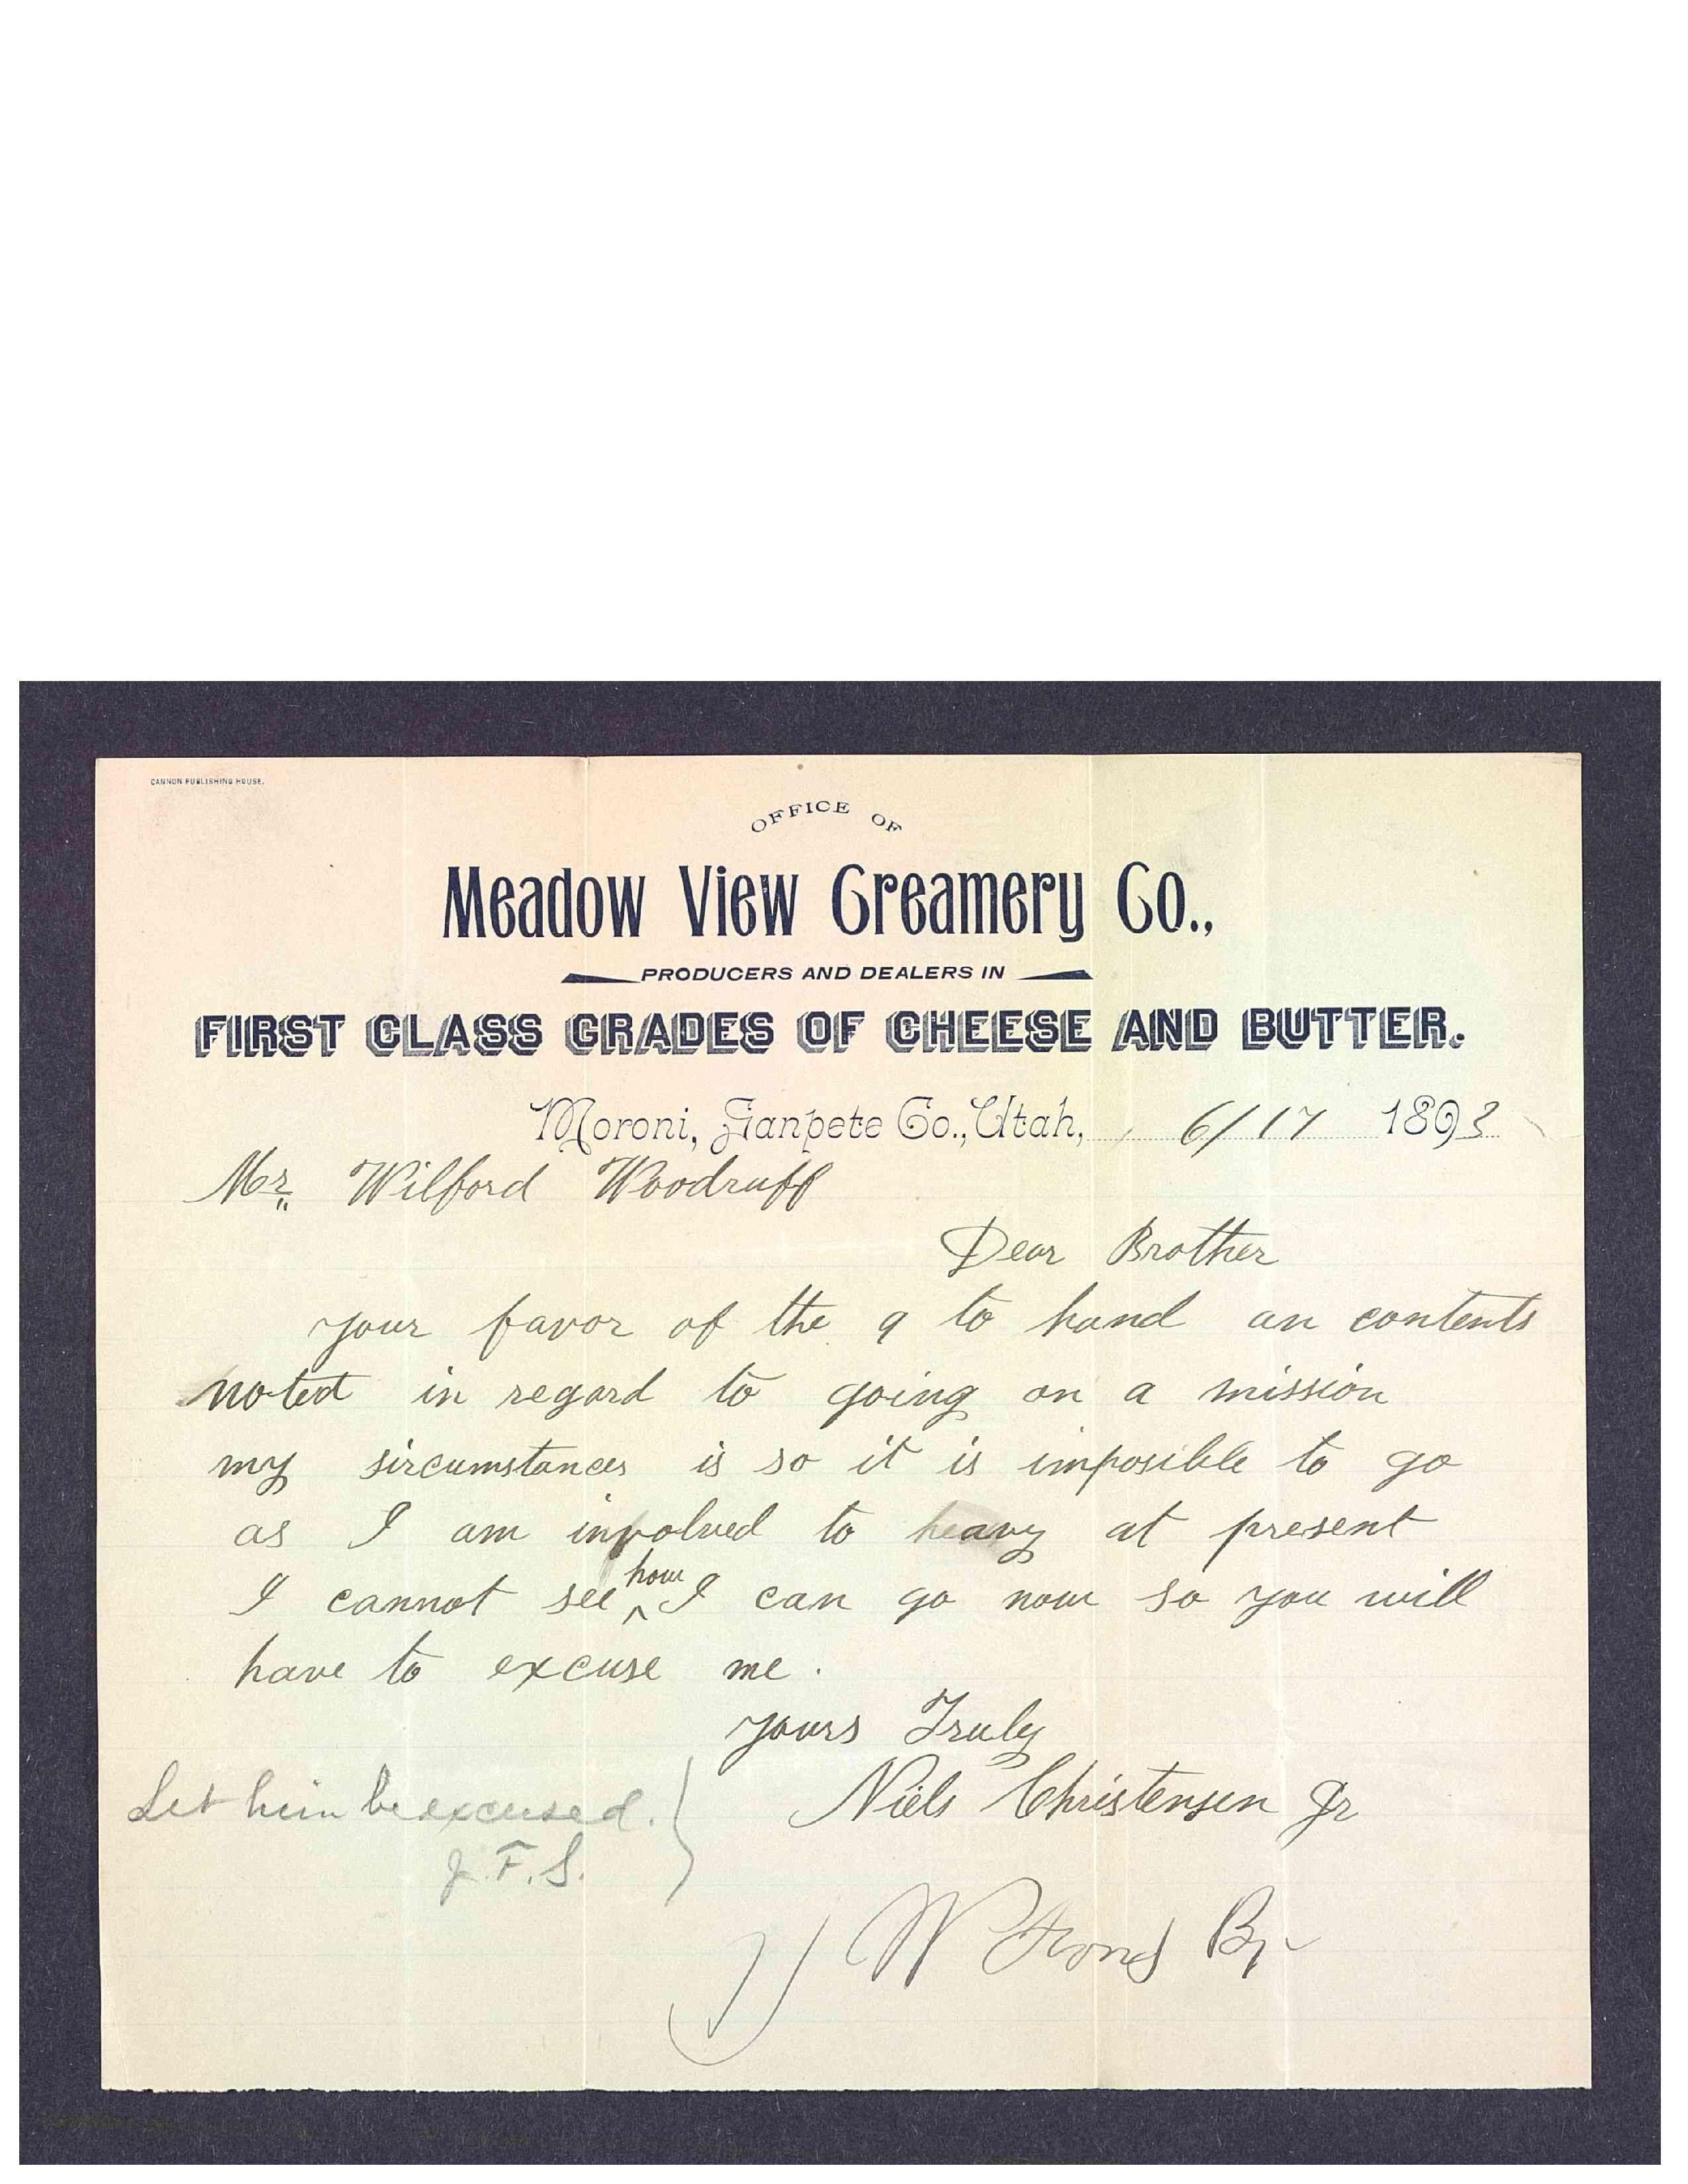 CANNON PUBLISHING HOUSE.
OFFICE OF
Meadow View Creamery Co.,
PRODUCERS AND DEALERS IN
FIRST CLASS GRADES OF CHEESE AND BUTTER.
Moroni, Sanpete Co., Utah, 6/17 1893
Mr. Wilford Woodruff
Dear Brother
your favor of the 9 to hand an contents
noted in regard to going on a mission
my sircumstances is so it is imposible to go
as I am involved to heavy at present
I cannot see how I can go now so you will
have to excuse me.
yours Truly
Niels Christensen Jr
Let him be excused.
J. F. S.